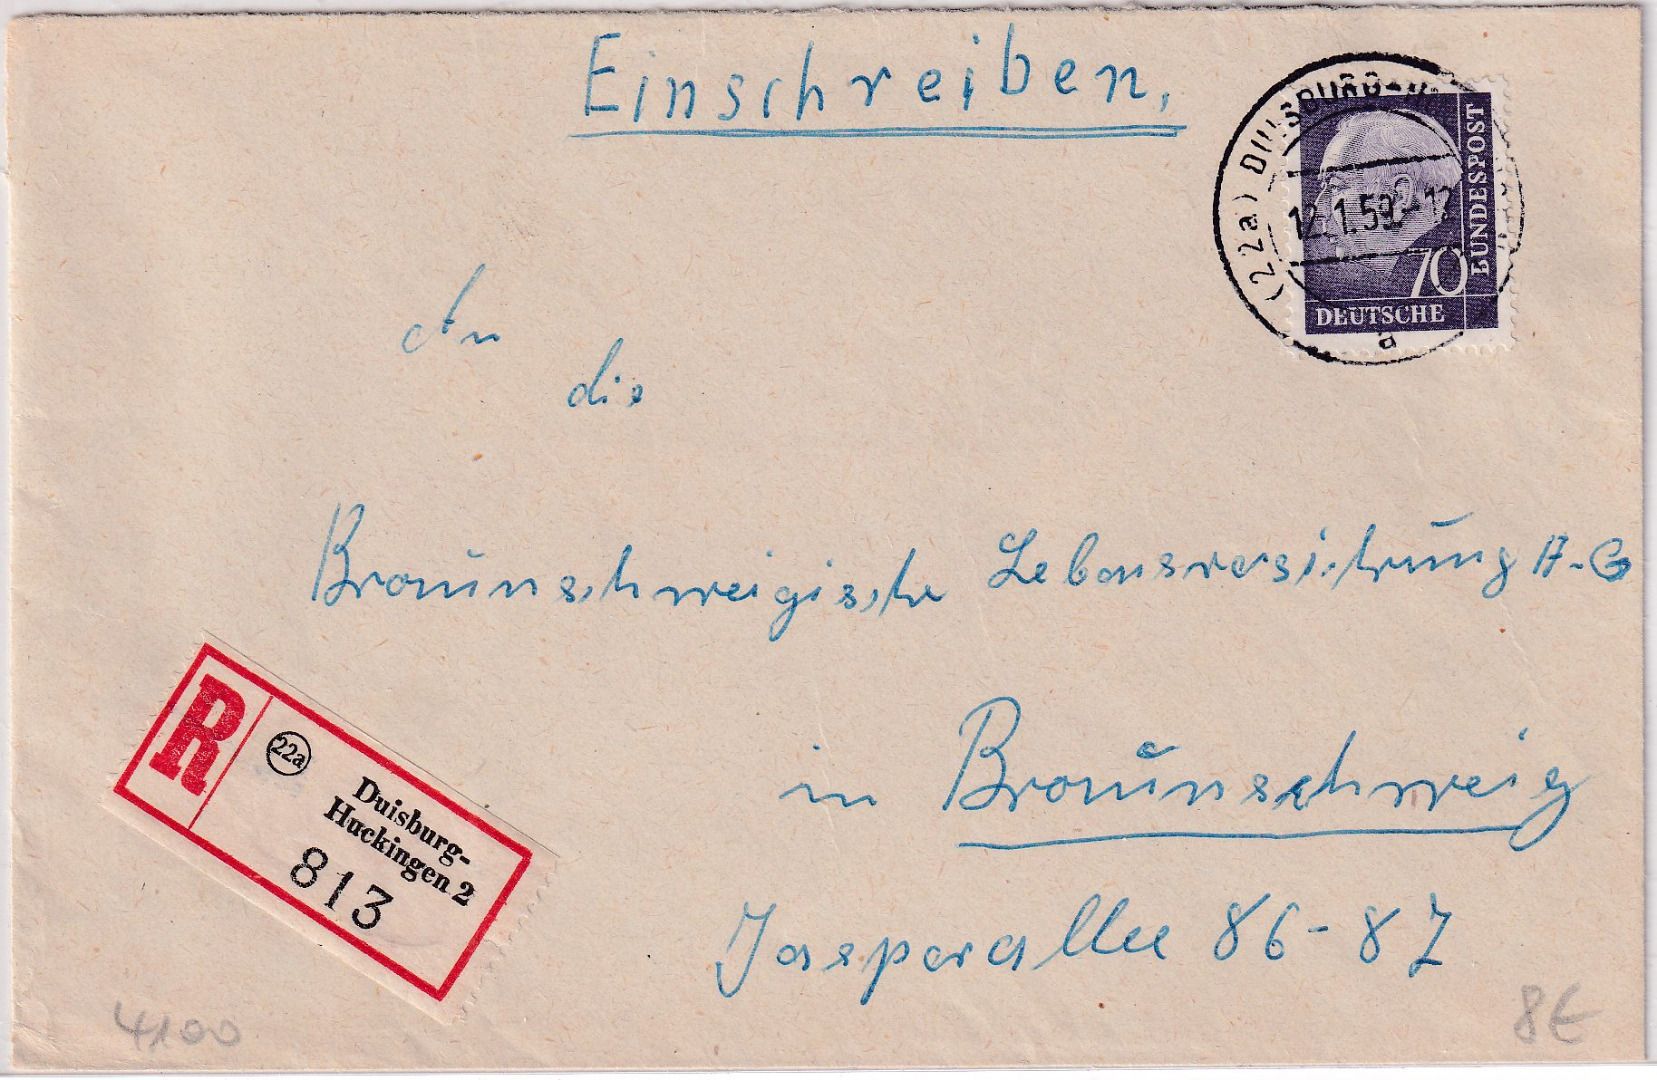 Einschreiben,
(22a) DUISBURG-H
12.1.59.-12
a
70
DEUTSCHE
BUNDESPOST
An
die
Braunschweigische Lebensversicherung A-G
in Braunschweig
Jasperallee 86-87
R
22a
Duisburg-
Huckingen 2
813
4100
8€